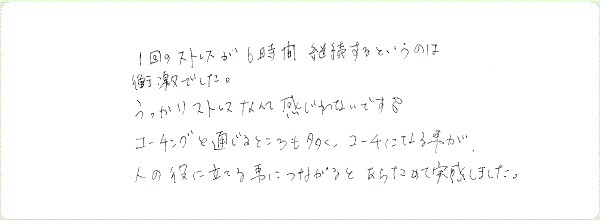 1回のストレスが6時間 継続するというのは
衝激でした。
うっかりストレスなんて感じれないですね
コーチングと通じるところも多く、コーチになる事が、
人の役に立てる事につながると あらためて実感しました。